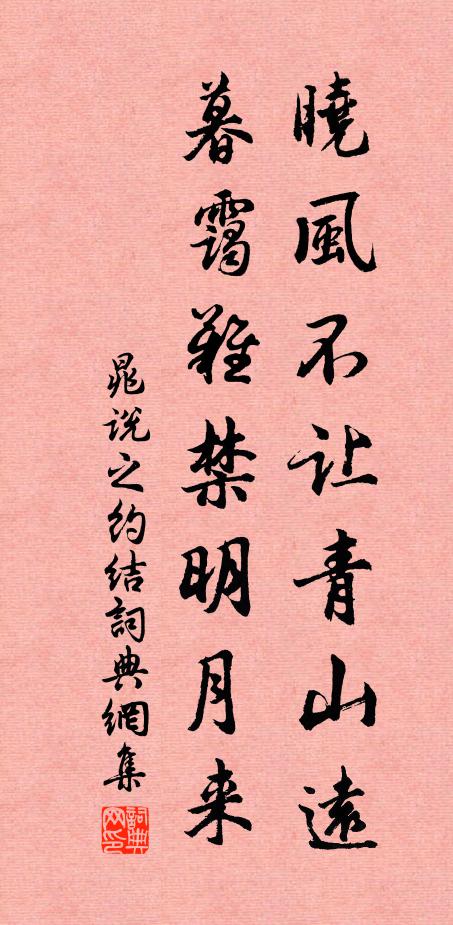 曉風不让青山遠
暮靄難禁明月来
晁説之约结詞典網集
詞典网印